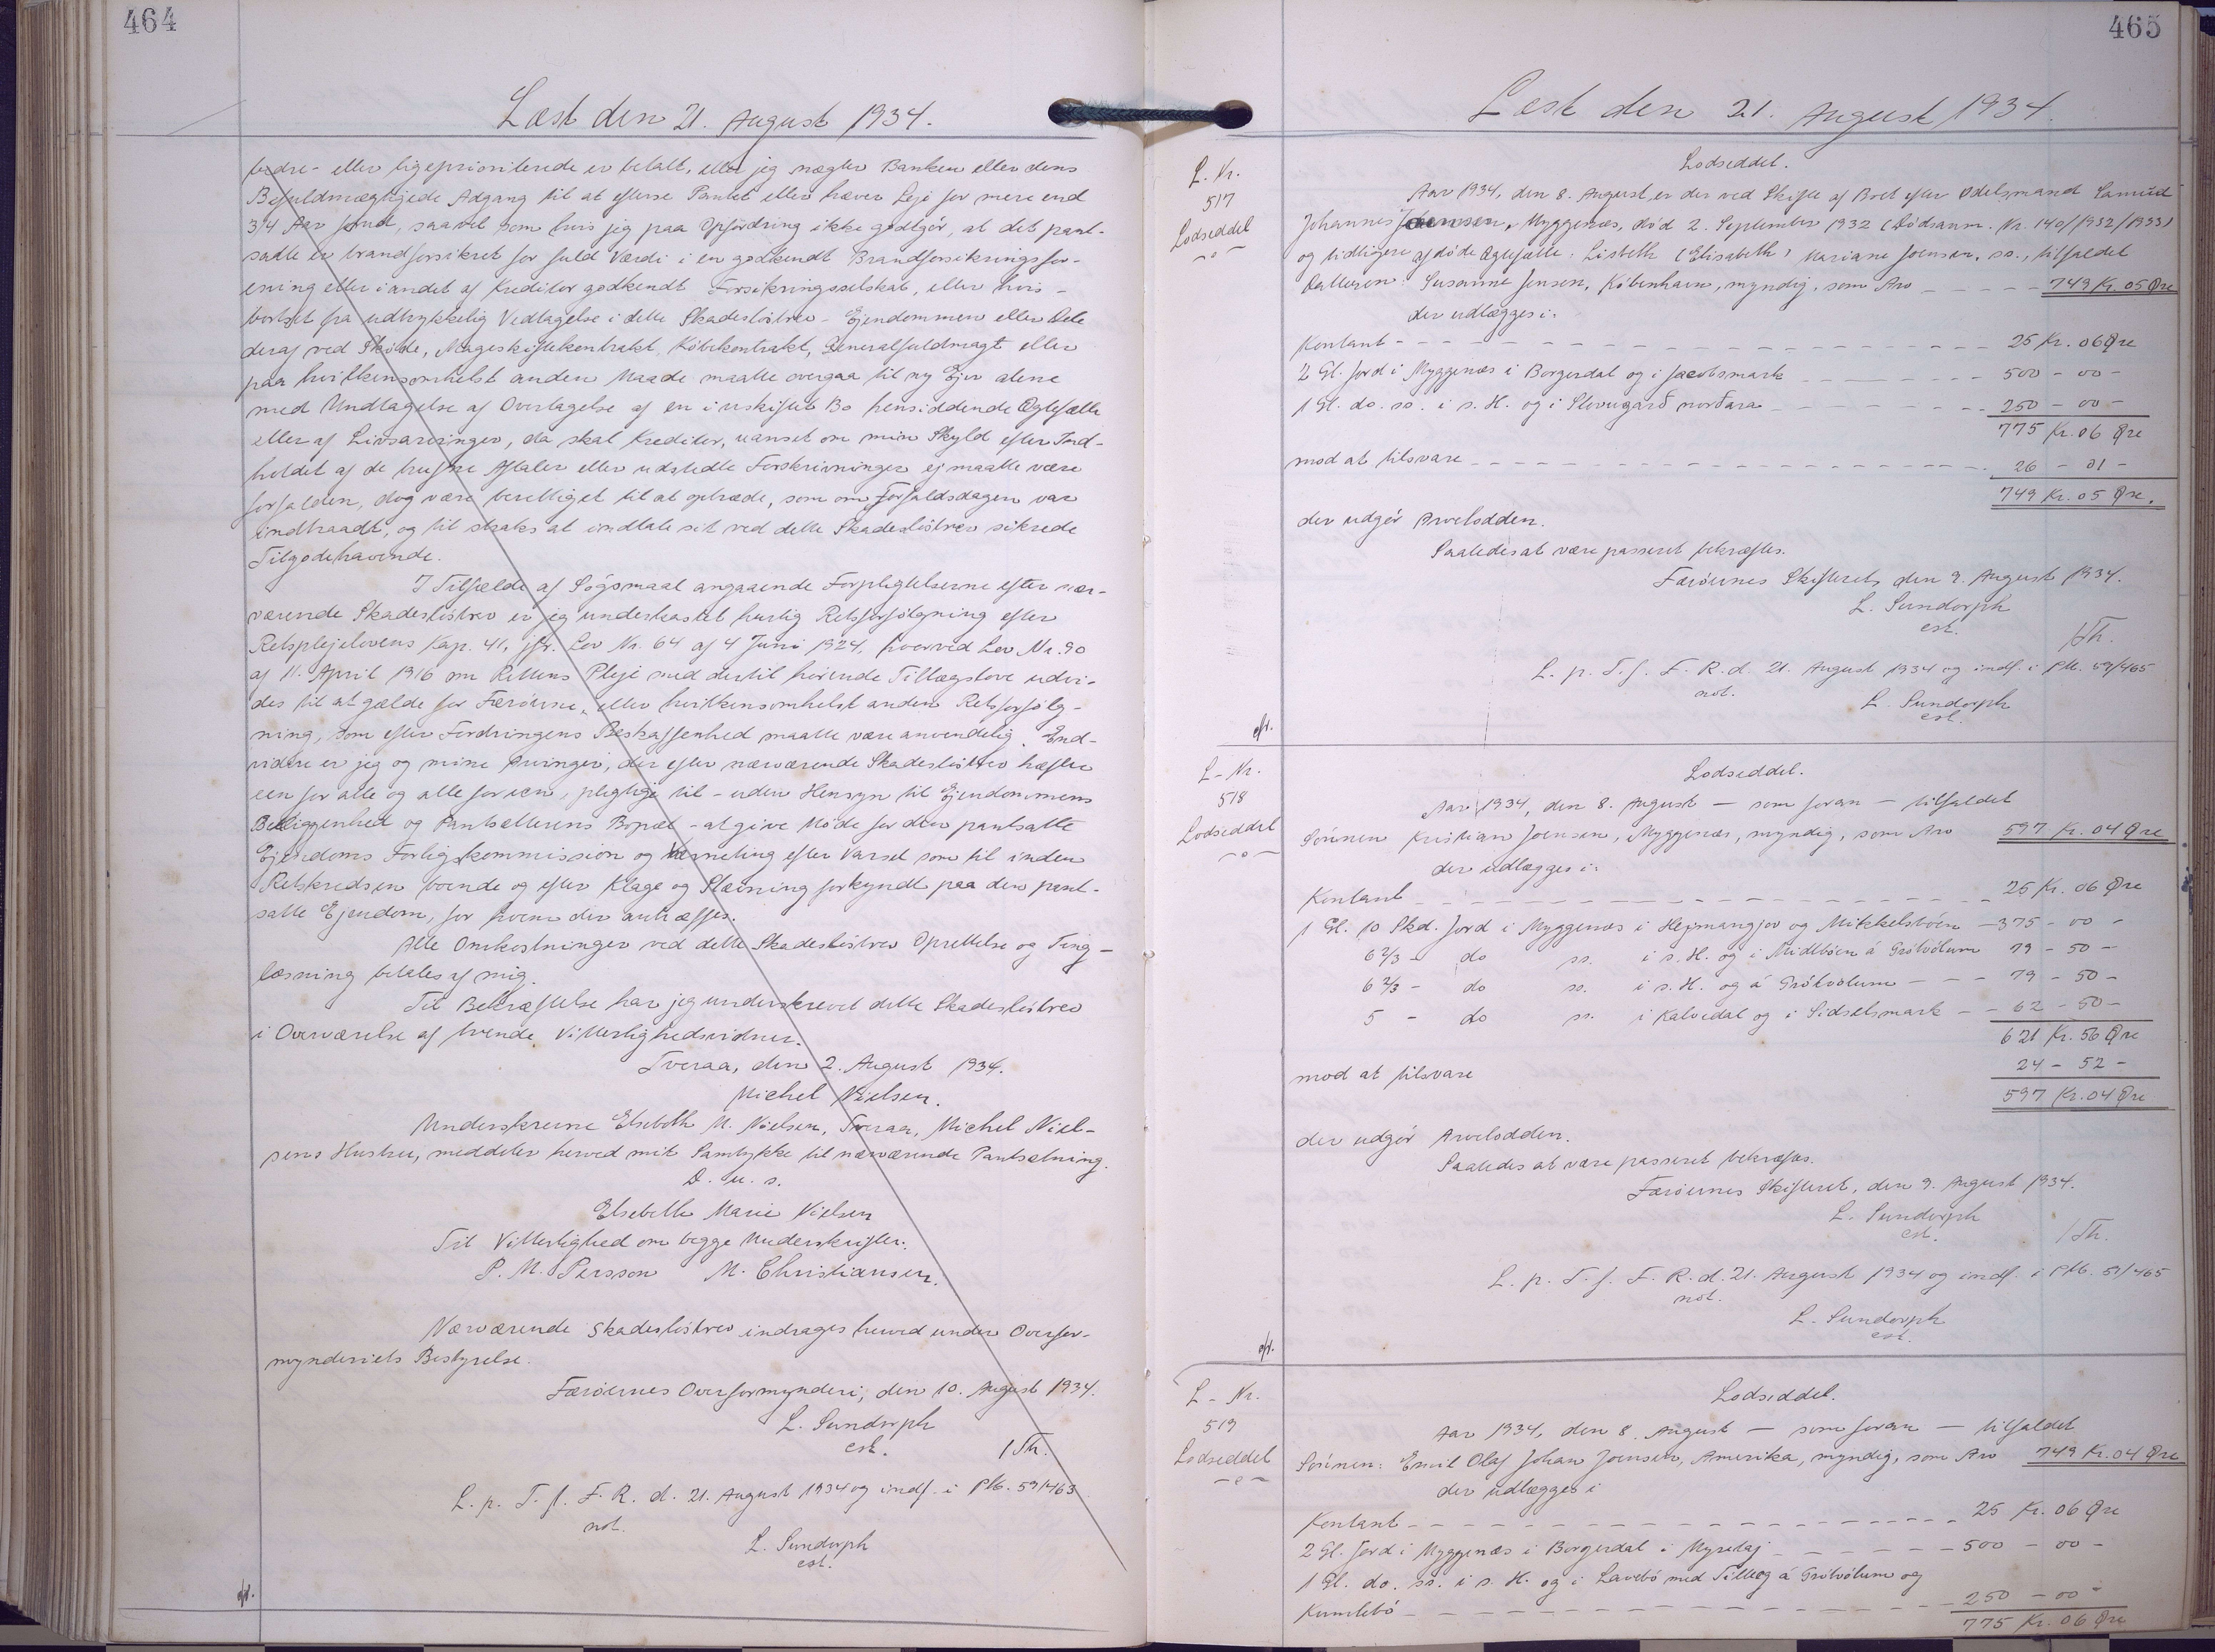 464
Læst den 21. August 1934.
bedre- eller ligeprioriterede er betalt, eller jeg nægter Banken eller dens
Befuldmægtigede Adgang til at efterse Pantet eller hæver Leje for mere end
3/4 Aar forud, saavel som hvis jeg paa Opfordring ikke godtgør, at det pant-
satte er brandforsikret for fuld Værdi i en godkendt Brandforsikringsfor-
ening eller i andet af Kreditor godkendt Forsikringsselskab, eller hvis -
bortset fra udtrykkelig Vedtagelse i dette Skadesløsbrev - Ejendommen eller Dele
deraf ved Skøde, Mageskiftekontrakt, Købekontrakt, Generalfuldmagt eller
paa hvilkensomhelst anden Maade maatte overgaa til ny Ejer alene
med Undtagelse af Overtagelse af en i uskiftet Bo hensiddende Ægtefælle
eller af Livsarvinger, da skal Kreditor, uanset om min Skyld efter Ind-
holdet af de trufne Aftaler eller udstedte Forskrivninger ej maatte være
forfalden, dog være berettiget til at optræde, som om Forfaldsdagen var
indtraadt, og til straks at inddtale sit ved dette Skadesløsbrev sikrede
Tilgodehavende.
I Tilfælde af Søgsmaal angaaende Forpligtelserne efter nær-
værende Skadesløsbrev er jeg underkastet hurtig Retsforfølgning efter
Retsplejelovens Kap. 41, jfr. Lov Nr. 64 af 4 Juni 1924, hvorved Lov Nr. 90
af 11. April 1916 om Rettens Pleje med dertil hørende Tillægslove udvi-
des til at gælde for Færøerne, eller hvilkensomhelst anden Retsforfølg-
ning, som efter Fordringens Beskaffenhed maatte være anvendelig. End-
videre er jeg og mine Arvinger, der efter nærværende Skadesløsbrev hæfter
een for alle og alle for een, pligtige til - uden Hensyn til Ejendommens
Beliggenhed og Pantsætterens Bopæl - at give Møde for den pantsatte
Ejendoms Forligskommission og Værneting efter Varsel som til inden
Retskredsen boende og efter Klage og Stævning forkyndt paa den pant-
satte Ejendom, for hvem der antræffes.
Alle Omkostninger ved dette Skadesløsbrevs Oprettelse og Ting-
læsning betales af mig.
Til Bekræftelse har jeg underskrevet dette Skadesløsbrev
i Overværelse af tvende Vitterlighedsvidner.
Tveraa, den 2. August 1934.
Michel Nielsen.
Underskrevne Elsebeth M. Nielsen, Tveraa, Michel Niel-
sens Hustru, meddeler herved mit Samtykke til nærværende Pantsætning.
D. u. s.
Elsebeth Marie Nielsen
Til Vitterlighed om begge Underskrifter:
P. M. Persson M. Christiansen.
Nærværende Skadesløsbrev inddrages herved under Overfor-
mynderiets Bestyrelse.
Færøernes Overformynderi, den 10. August 1934.
L. Sundorph
cst. / Th.
L. p. T. f. F. R. d. 21. August 1934 og indf. i PM. 59/463
not.
L. Sundorph
cst.
465
Læst den 21. August 1934.
L. Nr.
517
Lodseddel
Lodseddel.
Aar 1934, den 8. August, er der ved Skifte af Boet efter Odelsmand Samuel
Johannes Joensen, Myggenæs, død 2. September 1932 (Dødsanm. Nr. 140/1932/1933)
og tidligere afdøde Ægtefælle: Lisbeth (Elisabeth) Mariane Joensen, ss., tilfaldet
Datteren: Susanne Jensen, København, myndig, som Arv 749 Kr. 05 Øre
der udlægges i:
Kontant 25 Kr. 06 Øre
2 Gl. Jord i Myggenæs i Borgerdal og i Jacobsmark 500 - 00 -
1 Gl. do. ss. i s. H. og i norðara 250 - 00 -
775 Kr. 06 Øre
mod at tilsvare 26 - 01 -
749 Kr. 05 Øre.
der udgør Arvelodden.
Saaledes at være passeret bekræftes.
Færøernes Skifteret, den 9. August 1934.
L. Sundorph
cst. / Th.
L. p. T. f. F. R. d. 21. August 1934 og indf. i PM. 59/465
not.
L. Sundorph
cst.
L. Nr.
518
Lodseddel
Lodseddel.
Aar 1934, den 8. August — som foran — tilfaldet
Sønnen Kristian Joensen, Myggenæs, myndig, som Arv 597 Kr. 04 Øre
der udlægges i:
Kontant 25 Kr. 06 Øre
1 Gl. 10 Skd. Jord i Myggenæs i Hejmangjov og Mikkelsbøen 375 - 00 -
6 2/3 - do ss. i s. H. og i Midlbøen á Grótvølum 79 - 50 -
6 2/3 - do ss. i s. H. og á Grótvølum 79 - 50 -
5 - do ss. i Kalvedal og i Sidselsmark 62 - 50 -
621 Kr. 56 Øre
mod at tilsvare 24 - 52 -
597 Kr. 04 Øre
der udgør Arvelodden.
Saaledes at være passeret bekræftes.
Færøernes Skifteret, den 9. August 1934.
L. Sundorph
cst. / Th.
L. p. T. f. F. R. d. 21. August 1934 og indf. i PM. 59/465
not.
L. Sundorph
cst.
L. Nr.
519
Lodseddel
Lodseddel.
Aar 1934, den 8. August — som foran — tilfaldet
Sønnen: Emil Olaf Johan Joensen, Amerika, myndig, som Arv 749 Kr. 04 Øre
der udlægges i
Kontant 25 Kr. 06 Øre
2 Gl. Jord i Myggenæs i Borgerdal i 500 - 00 -
1 Gl. do. ss. i s. H. og i Lavebø med Tillæg á Grótvølum og
Kumlebø 250 - 00 -
775 Kr. 06 Øre